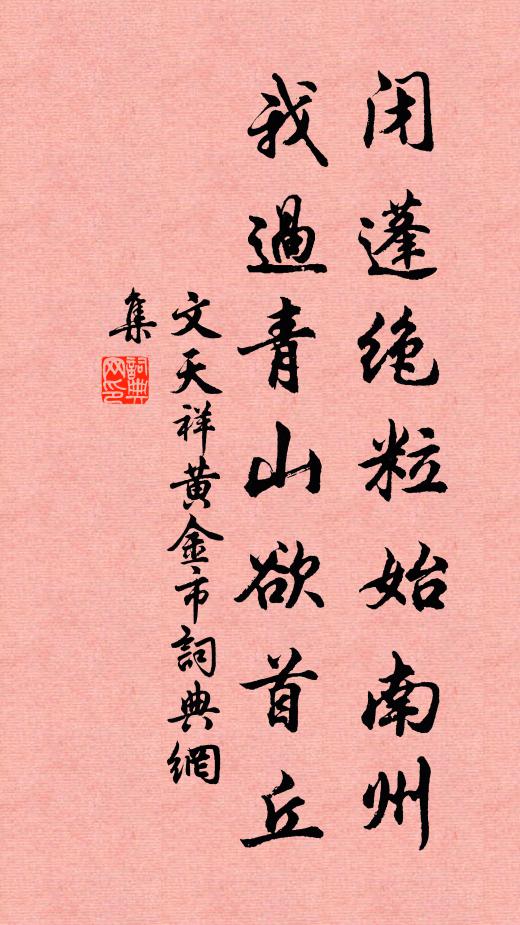 闭蓬绝粒始南州
我過青山欲首丘
文天祥黄金市詞典網
集
詞典網印